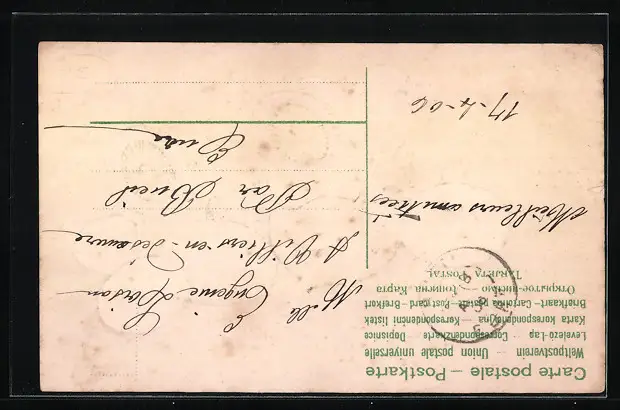 Carte postale – Postkarte
Weltpostverein – Union postale universelle
Levelező-Lap – Correspondenzkarte – Dopisnice
Karta korespondencyjna – Korespondenční listek
Briefkaart – Cartolina postale – Postcard – Brefkort
Открытое письмо
Tarjeta Postal
17-4-06
Meilleurs amitiés
Mlle
Eugénie
A Villiers en Désœuvre
Par Bueil
Eure